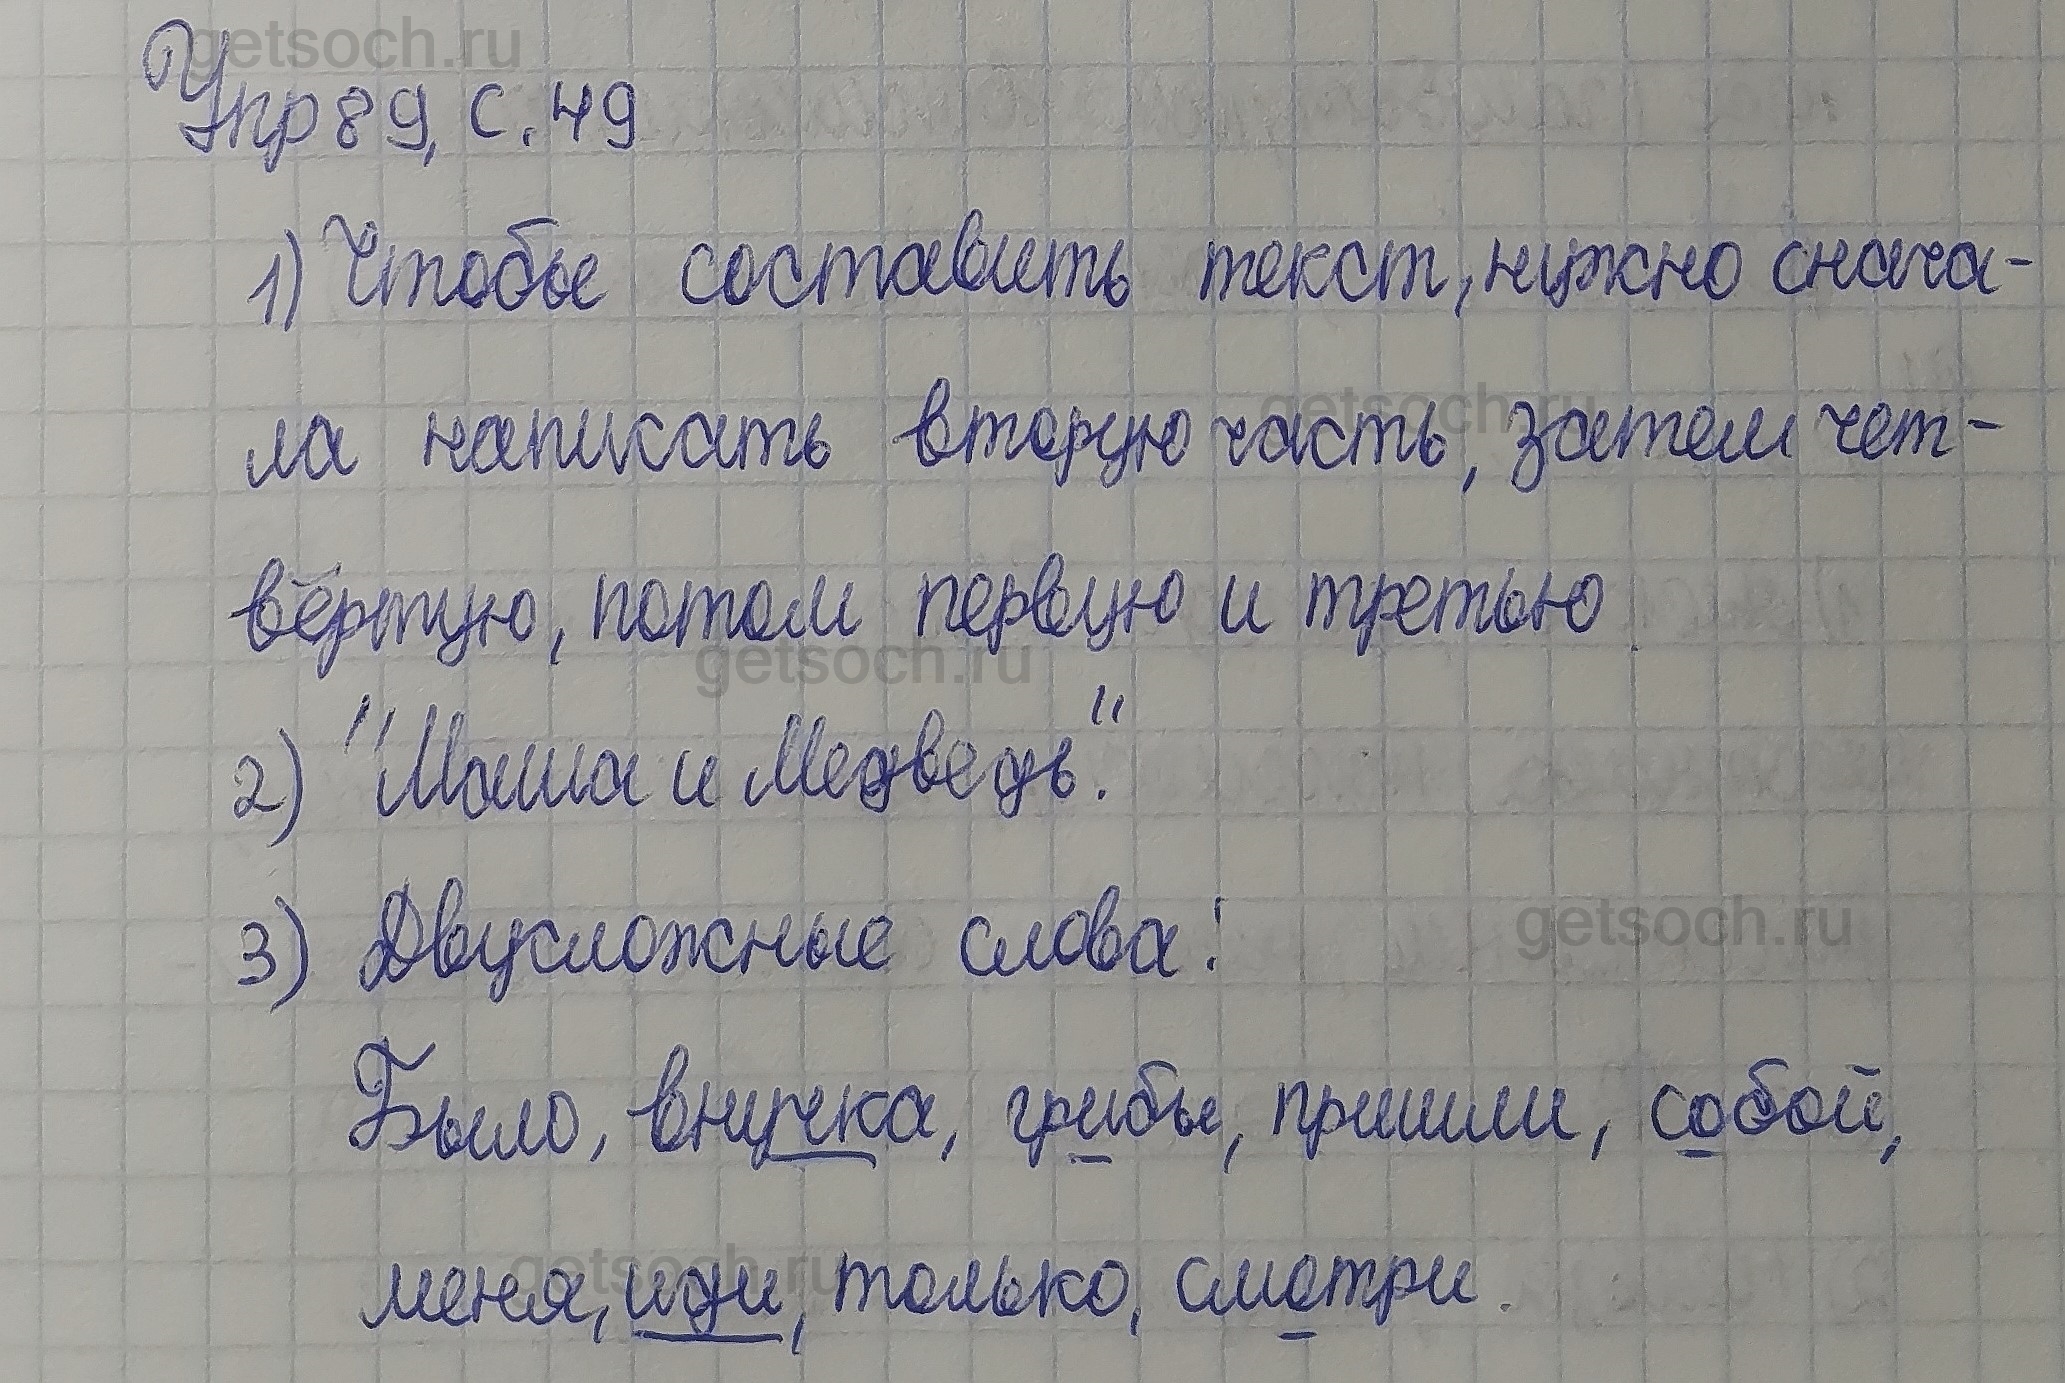 getsoch.ru
Упр 89, с. 49
1) Чтобы составить текст, нужно снача-
getsoch.ru
ла написать вторую часть, затем чет-
вёртую, потом первую и третью.
getsoch.ru
2) "Маша и Медведь".
3) Двусложные слова:
getsoch.ru
Было, внучка, грибы, пришли, собой,
getsoch.ru
меня, иди, только, смотри.